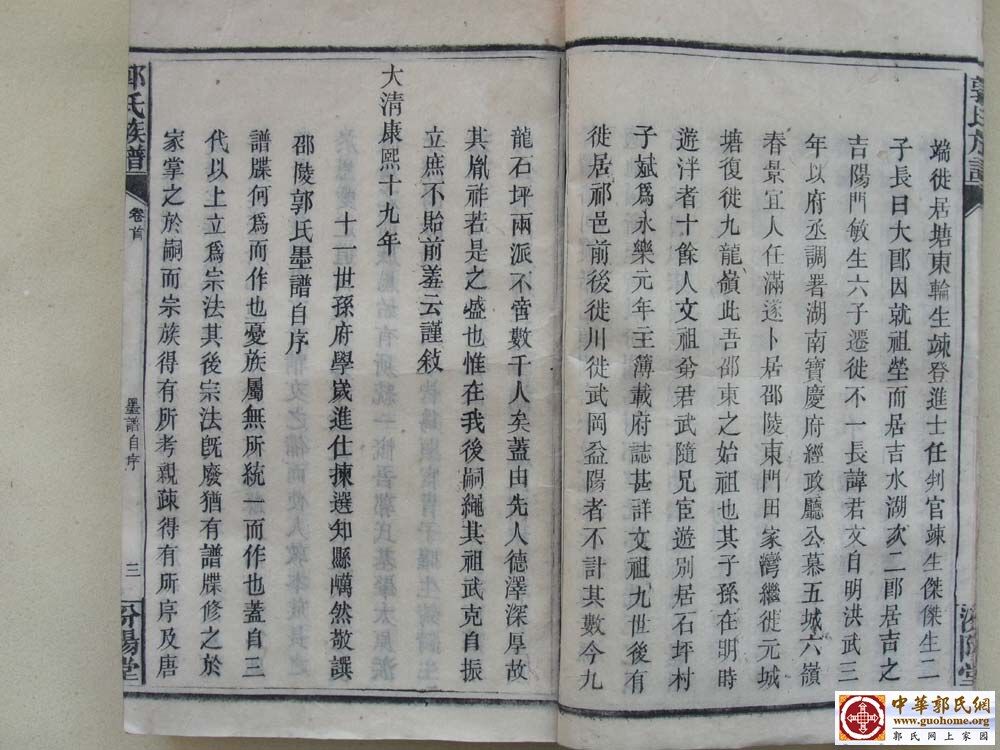 端徙居塘東輪生竦登進士任判官竦生傑傑生二
子長曰大郎因就祖塋而居吉水湖次二郎居吉之
吉陽門敏生六子遷徙不一長諱君文自明洪武三
年以府丞調署湖南寶慶府經政廳公慕五城六嶺
春景宜人任滿遂卜居邵陵東門田家灣繼徙元城
塘復徙九龍嶺此吾邵東之始祖也其子孫在明時
遊泮者十餘人文祖弟君武隨兄宦遊別居石坪村
子斌爲永樂元年主薄載府誌甚詳文祖九世後有
徙居祁邑前後徙川徙武岡益陽者不計其數今九
龍石坪兩派不啻數千人矣蓋由先人德澤深厚故
其胤祚若是之盛也惟在我後嗣繩其祖武克自振
立庶不貽前羞云謹敘
大清康熙十九年
十一世孫府學歲進仕揀選知縣䮾然敬譔
邵陵郭氏墨譜自序
譜牒何爲而作也憂族屬無所統一而作也蓋自三
代以上立爲宗法其後宗法旣廢猶有譜牒修之於
家掌之於嗣而宗族得有所考親疎得有所序及唐
郭氏族譜
卷首
墨譜自序
三
汾陽堂
中華郭氏網
www.guohome.org
郭氏网上家园